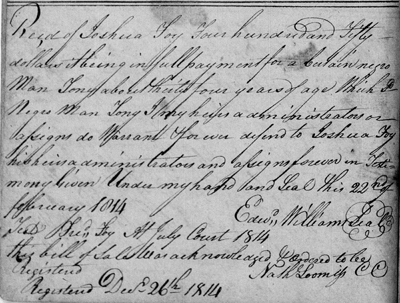 Recd of Joshua Foy Four hundred and Fifty
dollars it being in full payment for a certain negro
Man Tony about thirty four years of age Which sd
Negro Man Tony I my heirs administrators or
assigns do Warrant & forever defend to Joshua Foy
his heirs administrators and assigns forever in Testi
mony Given Under my hand and Seal this 22nd of
February 1814
Edwd Williams Seal
Test Foy At July Court 1814
this bill of Sale was acknowledged & ordered to be
Registered
Nath Loomiss CC
Registered Decr 26th 1814